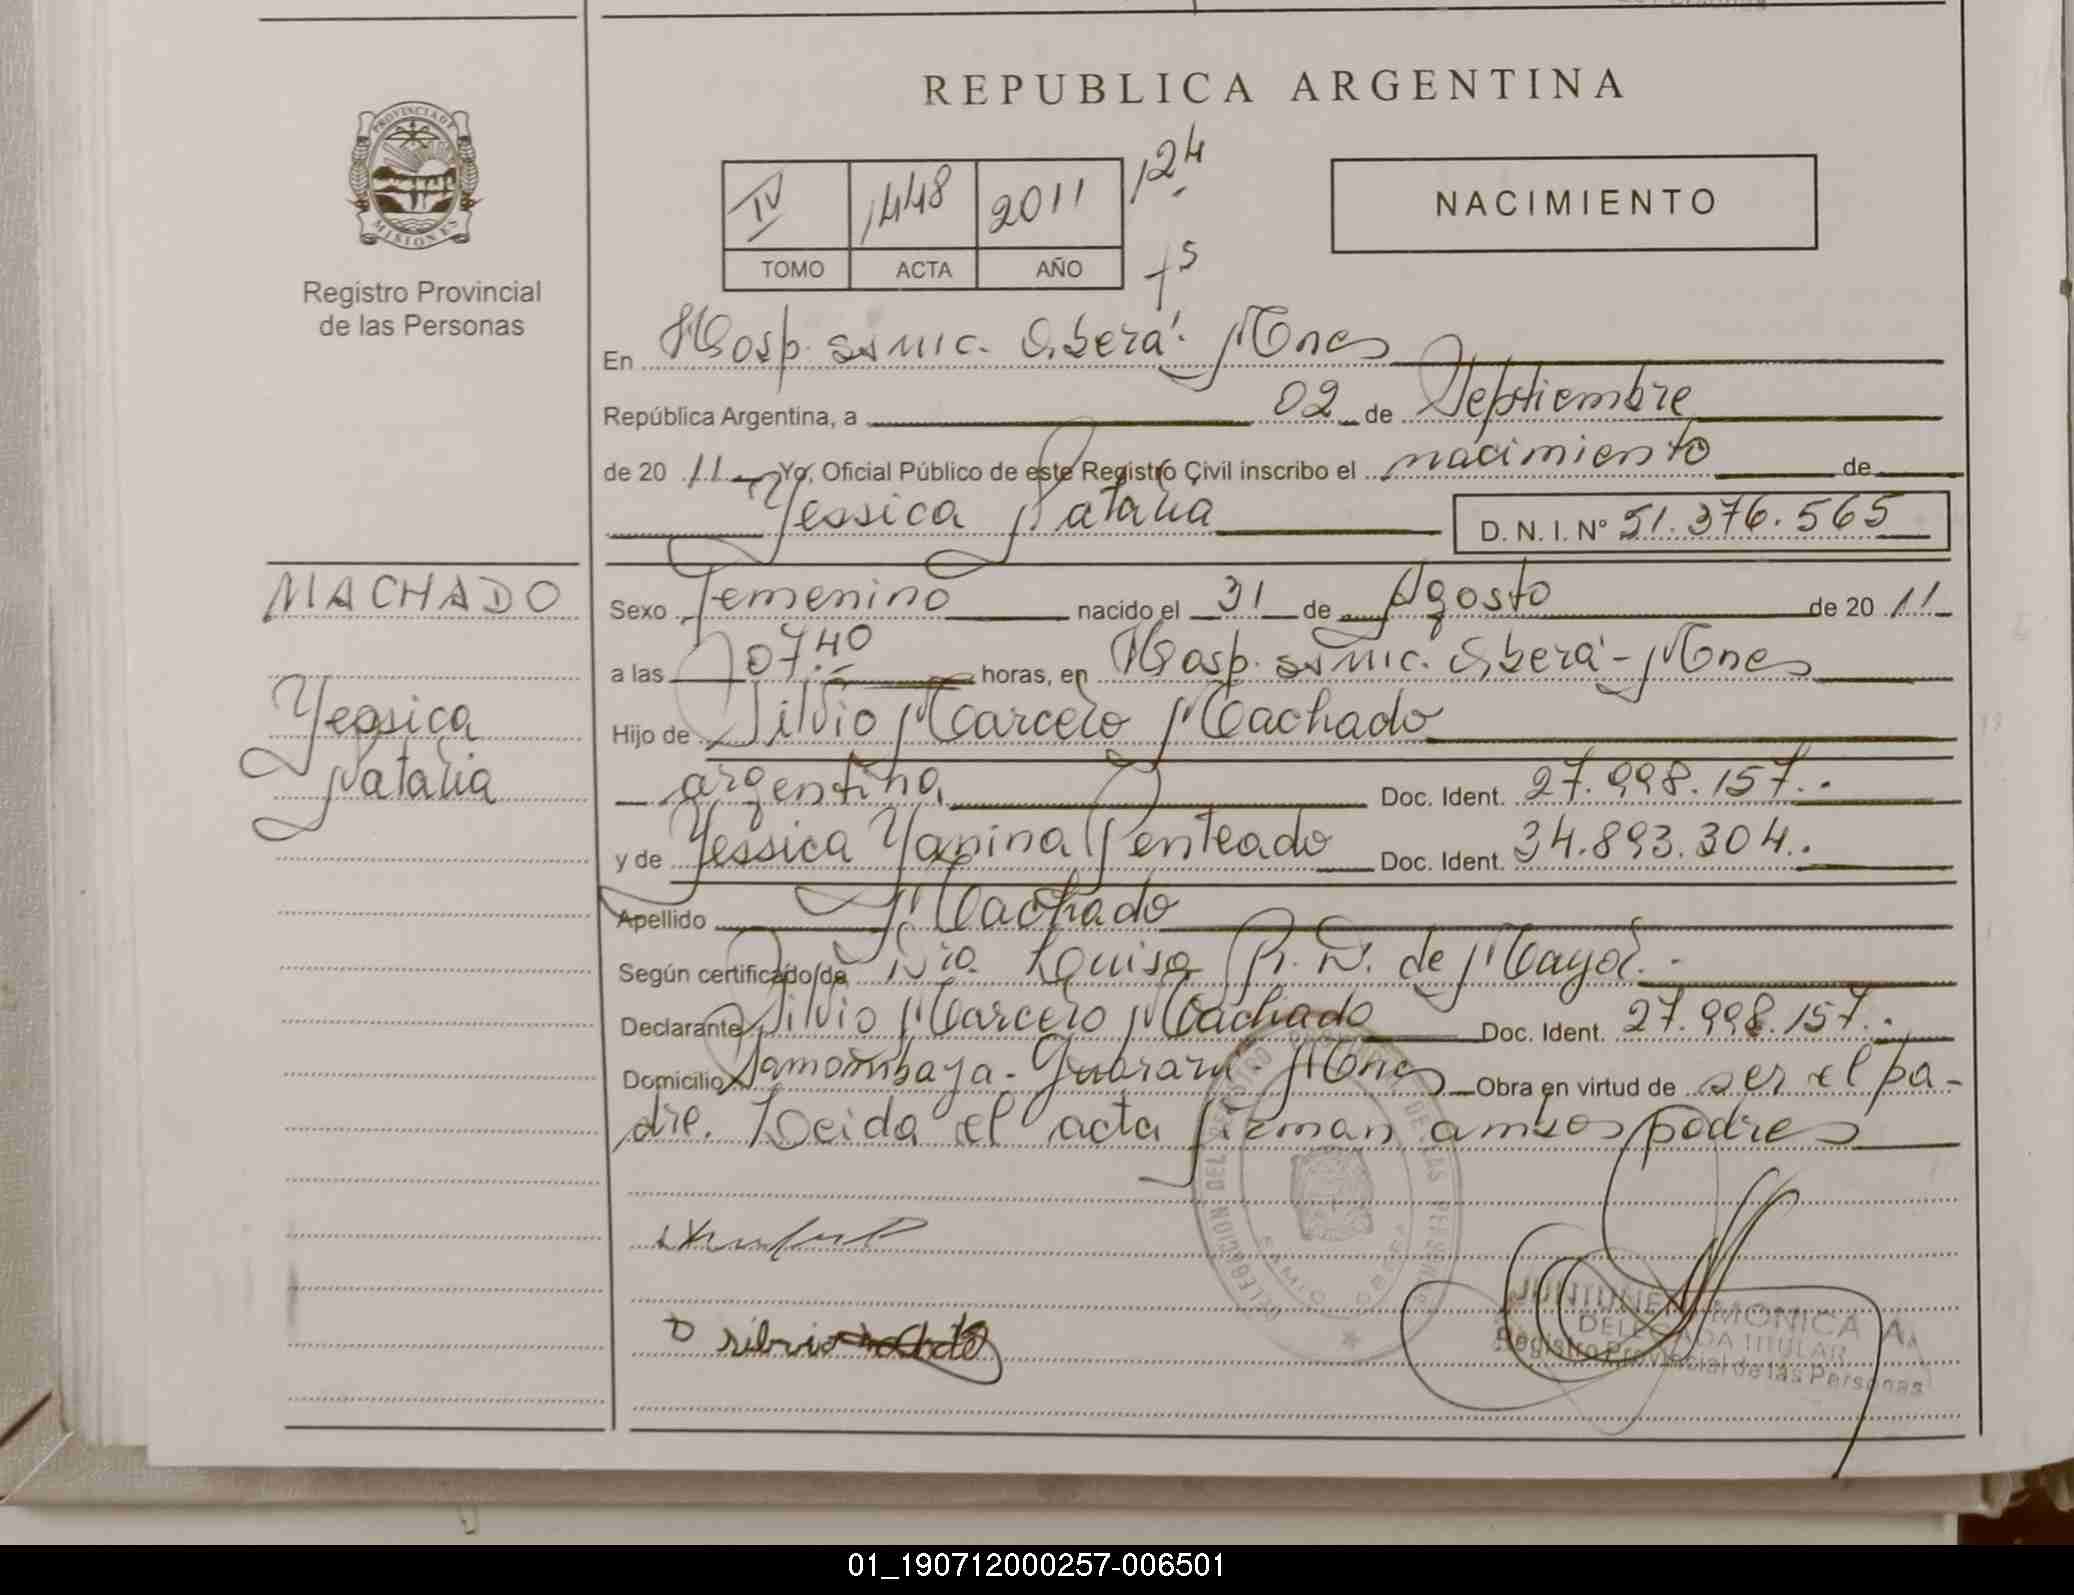 REPUBLICA ARGENTINA
PROVINCIA DE
MISIONES
Registro Provincial
de las Personas
IV 1448 2011 124
TOMO ACTA AÑO
NACIMIENTO
En Hosp. SAMIC. Oberá. Mnes
República Argentina, a 02 de Septiembre
de 20 11 Yo, Oficial Público de este Registro Civil inscribo el nacimiento de
Yessica Natalia D. N. I. N° 51.376.565
MACHADO
Yessica
Natalia
Sexo Femenino nacido el 31 de Agosto de 20 11
a las 07:40 horas, en Hosp. SAMIC. Oberá - Mnes
Hijo de Silvio Marcelo Machado
argentina Doc. Ident. 27.998.157..
y de Yessica Yanina Penteado Doc. Ident. 34.893.304..
Apellido Machado
Según certificado de Luisa R. N. de
Declarante Silvio Marcelo Machado Doc. Ident. 27.998.157..
Domicilio - Guaraní - Mnes Obra en virtud de ser el pa-
dre. Leida el acta firman ambos padres
silvio
MONICA A.
DELEGADA TITULAR
Registro Provincial de las Personas
01_190712000257-006501